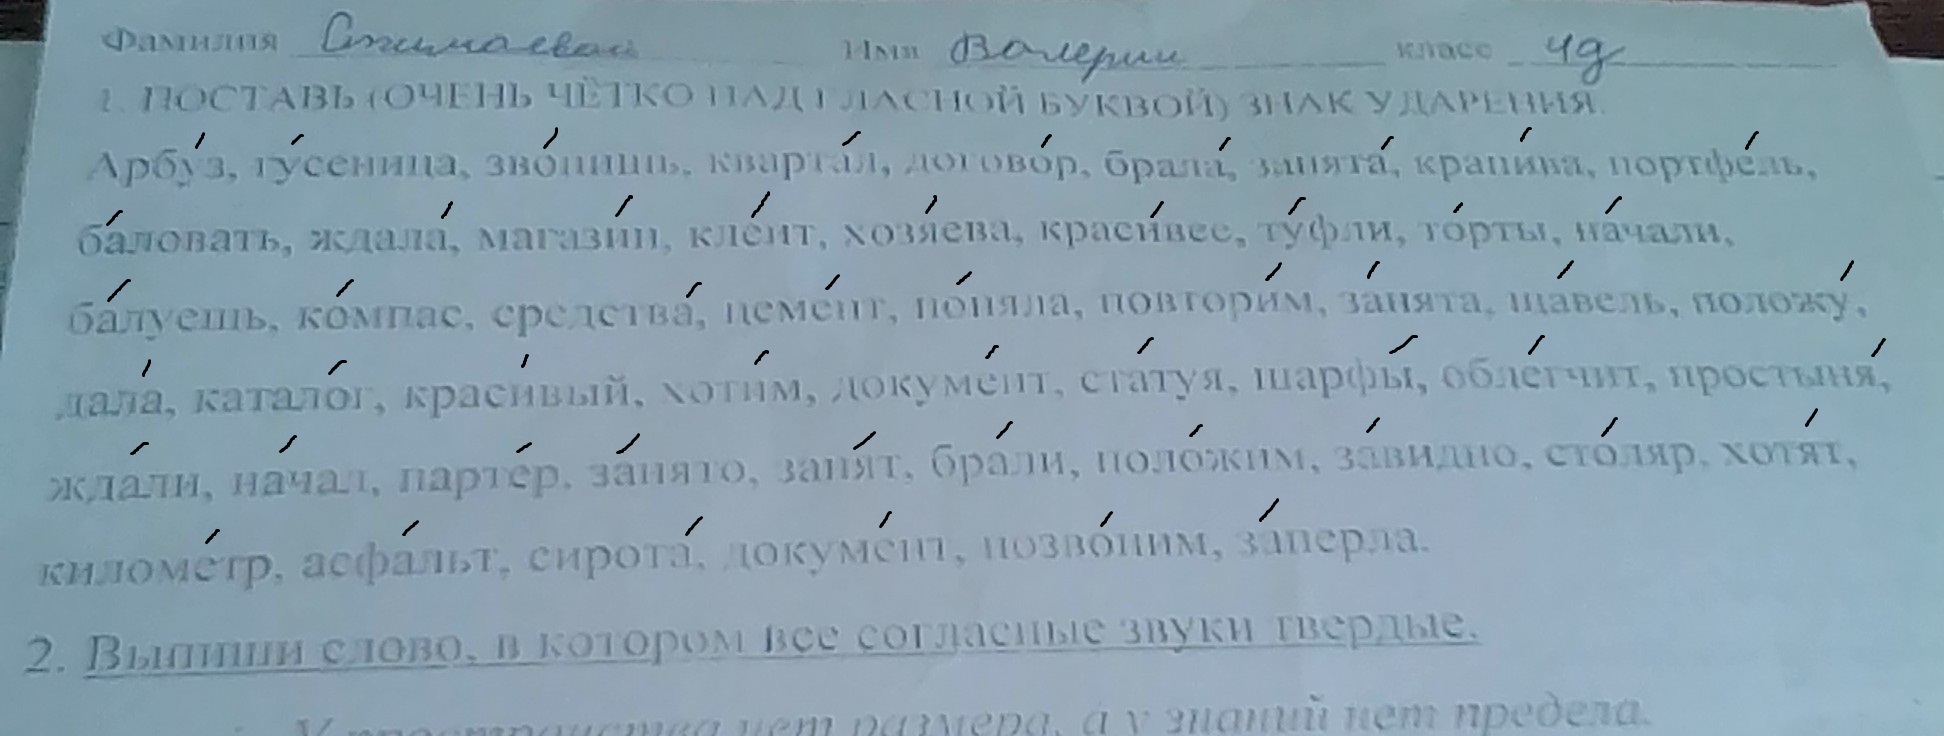 Фамилия Имя Валерии класс 4д
1. ПОСТАВЬ (ОЧЕНЬ ЧЁТКО НАД ГЛАСНОЙ БУКВОЙ) ЗНАК УДАРЕНИЯ.
Арбу́з, гу́сеница, зво́нишь, кварта́л, догово́р, брала́, занята́, крапи́ва, портфе́ль,
ба́ловать, ждала́, магази́н, кле́ит, хозя́ева, краси́вее, ту́фли, то́рты, на́чали,
ба́луешь, ко́мпас, средства́, цеме́нт, по́няла, повтори́м, за́нята, ща́вель, положу́,
дала́, катало́г, краси́вый, хоти́м, докуме́нт, ста́туя, шарфы́, обле́гчит, простыня́,
жда́ли, на́чал, парте́р, за́нято, заня́т, бра́ли, поло́жим, за́видно, сто́ляр, хотя́т,
киломе́тр, асфа́льт, сирота́, докуме́нт, позво́ним, за́перла.
2. Выпиши слово, в котором все согласные звуки твердые.
У пространства нет размера, а у знаний нет предела.